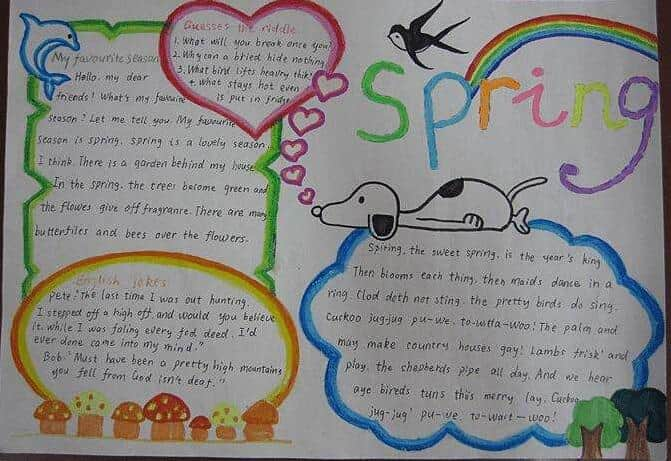 Spring
Guesses the riddle
1. What will you break once you
2. Why can a bried hide nothing
3. What bird lifts heavry thiks
4. What stays hot even
is put in fridge
My favourite season
Hello. my dear
friends! What's my favuine
season? Let me tell you. My favourite
season is spring. spring is a lovely season.
I think. There is a garden behind my house
In the spring. the trees become green and
the flowes give off fragranre. There are many
butterfiles and bees over the flowers.
English jokes
Pete: "The last time I was out hunting.
I stepped off a high off and would you believe
it. while I was faling every fed deed. I'd
ever done came into my mind."
Bob. "Must have been a pretty high mountains
you fell from God isn't deaf."
Spiring. the sweet spring. is the year's king
Then blooms each thing. then maids dance in a
ring. Clod doth not sting. the pretty birds do sing.
Cuckoo jug-jug pu-we. to-witta-woo! The palm and
may make country houses gay! Lambs frisk and
play. the shepherds pipe all day. And we hear
aye bireds tuns this merry lay. Cuckoo
jug-jug' pu-we. to-wait-woo!